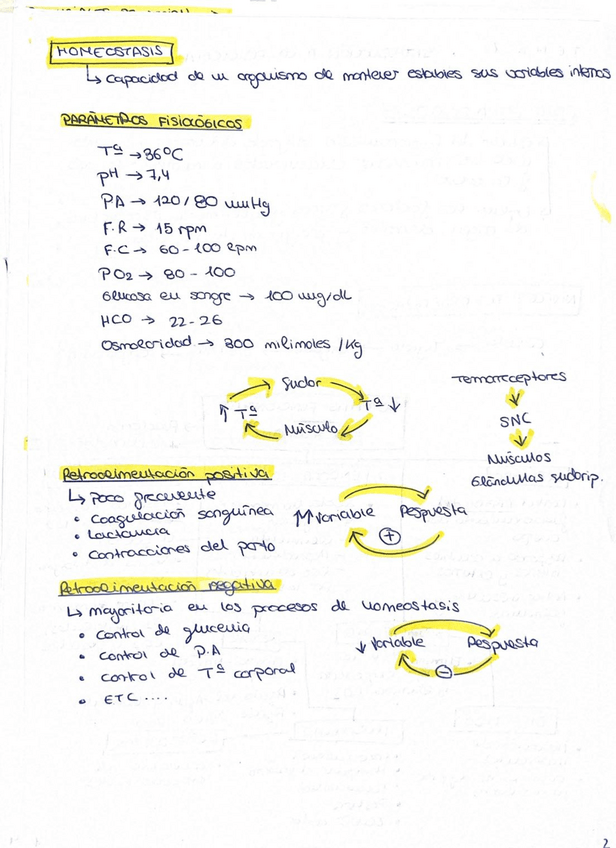 HOMEOSTASIS
↳ capacidad de un organismo de mantener estables sus variables internas
PARÁMETROS FISIOLÓGICOS
Tª → 36ºC
pH → 7,4
PA → 120/80 mmHg
F.R → 15 rpm
F.C → 60-100 lpm
PO2 → 80-100
Glucosa en sangre → 100 mg/dL
HCO → 22-26
Osmolaridad → 300 milimoles /Kg
Sudor
↑ Tª
Tª ↓
Músculo
Termoreceptores
SNC
Músculos
Glándulas sudorip.
Retroalimentación positiva
↳ Poco frecuente
• Coagulación sanguínea
• Lactancia
• Contracciones del parto
↑↑ Variable Respuesta
+
Retroalimentación negativa
↳ mayoritoria en los procesos de homeostasis
• control de glucemia
• control de P.A
• control de Tª corporal
• ETC ....
↓ Variable Respuesta
−
2